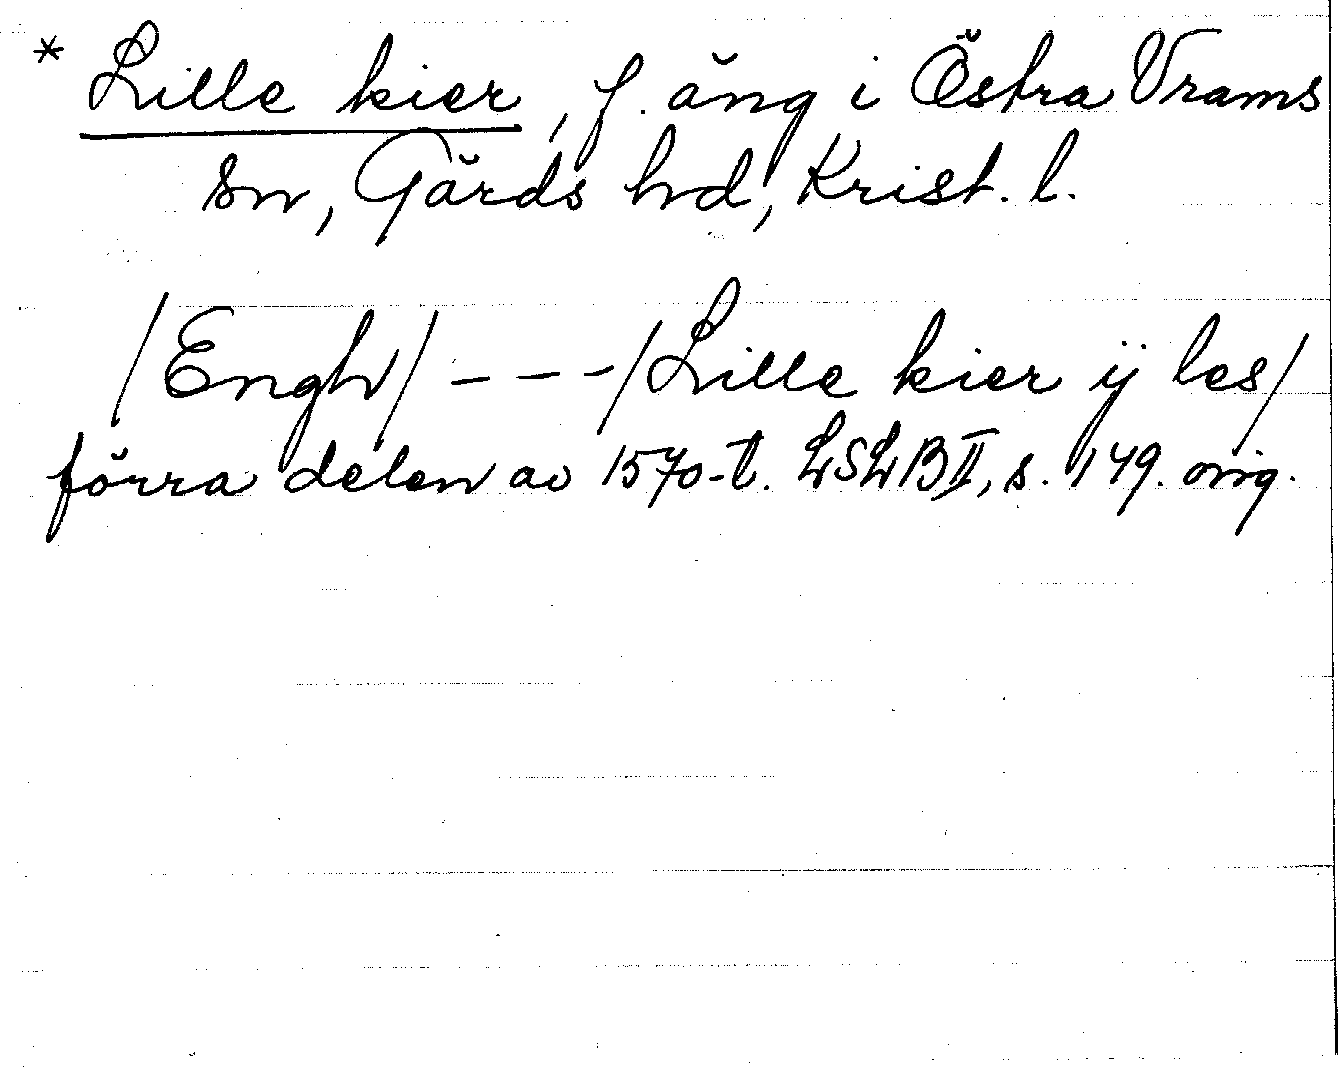 * Lille kier, f. äng i Östra Vrams
sn, Gärds hd, Krist. l.
/Engh/ - - - /Lille kier ÿ les/
förra delen av 1570-t. LSLB II, s. 149. orig.